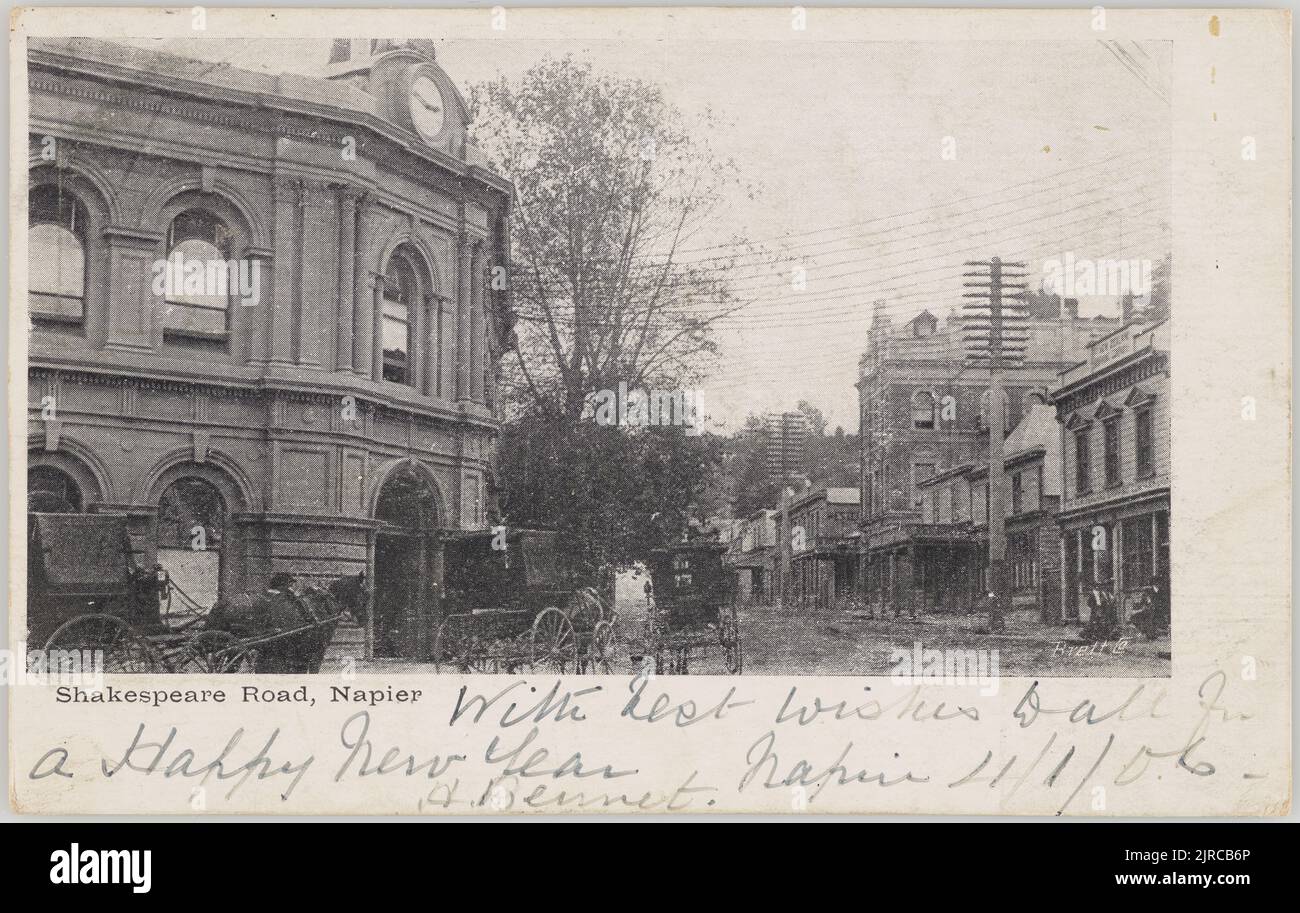 Pruett Co
Shakespeare Road, Napier
With best wishes & all for
a Happy New Year
H. Bennet. Napier 11/1/06
alamy
alamy
Image ID: 2JRCB6P
www.alamy.com